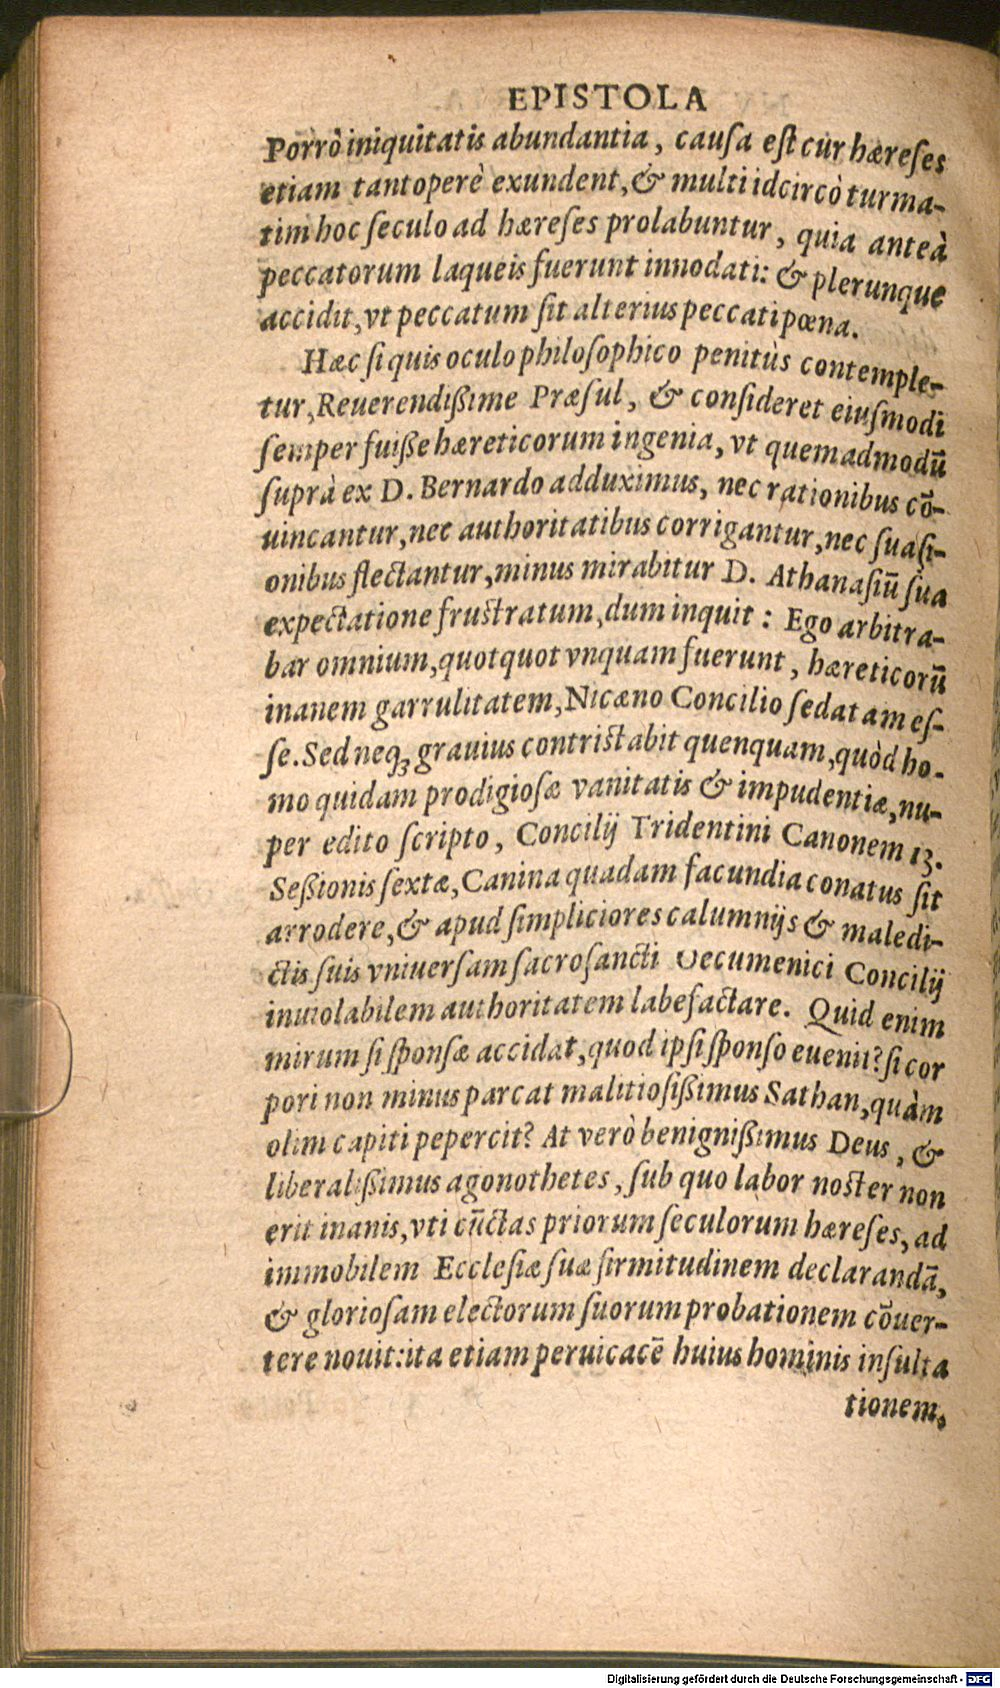 EPISTOLA
Porrò iniquitatis abundantia, cauſa eſt cur hæreſes
etiam tantoperè exundent, & multi idcircò turma-
tim hoc ſeculo ad hæreſes prolabuntur, quia anteà
peccatorum laqueis fuerunt innodati: & plerunque
accidit, vt peccatum ſit alterius peccati pœna.
Hæc ſi quis oculo philoſophico penitùs contemple-
tur, Reuerendißime Præſul, & conſideret eiuſmodi
ſemper fuiße hæreticorum ingenia, vt quemadmodū
ſuprà ex D. Bernardo adduximus, nec rationibus cō-
uincantur, nec authoritatibus corrigantur, nec ſuaſi-
onibus flectantur, minus mirabitur D. Athanaſiū ſua
expectatione fruſtratum, dum inquit: Ego arbitra-
bar omnium, quotquot vnquam fuerunt, hæreticorū
inanem garrulitatem, Nicæno Concilio ſedatam eſ-
ſe. Sed neq; grauius contriſtabit quenquam, quòd ho-
mo quidam prodigioſæ vanitatis & impudentiæ, nu-
per edito ſcripto, Concilij Tridentini Canonem 13.
Seßionis ſextæ, Canina quadam facundia conatus ſit
arrodere, & apud ſimpliciores calumnijs & maledi-
ctis ſuis vniuerſam ſacroſancti Oecumenici Concilij
inuiolabilem authoritatem labefactare. Quid enim
mirum ſi ſponſæ accidat, quod ipſi ſponſo euenit? ſi cor
pori non minus parcat malitioſißimus Sathan, quàm
olim capiti pepercit? At verò benignißimus Deus, &
liberalißimus agonothetes, ſub quo labor noſter non
erit inanis, vti cūctas priorum ſeculorum hæreſes, ad
immobilem Eccleſiæ ſuæ firmitudinem declarandā,
& glorioſam electorum ſuorum probationem cōuer-
tere nouit: ita etiam peruicacē huius hominis inſulta
tionem,
Digitalisierung gefördert durch die Deutsche Forschungsgemeinschaft - DFG